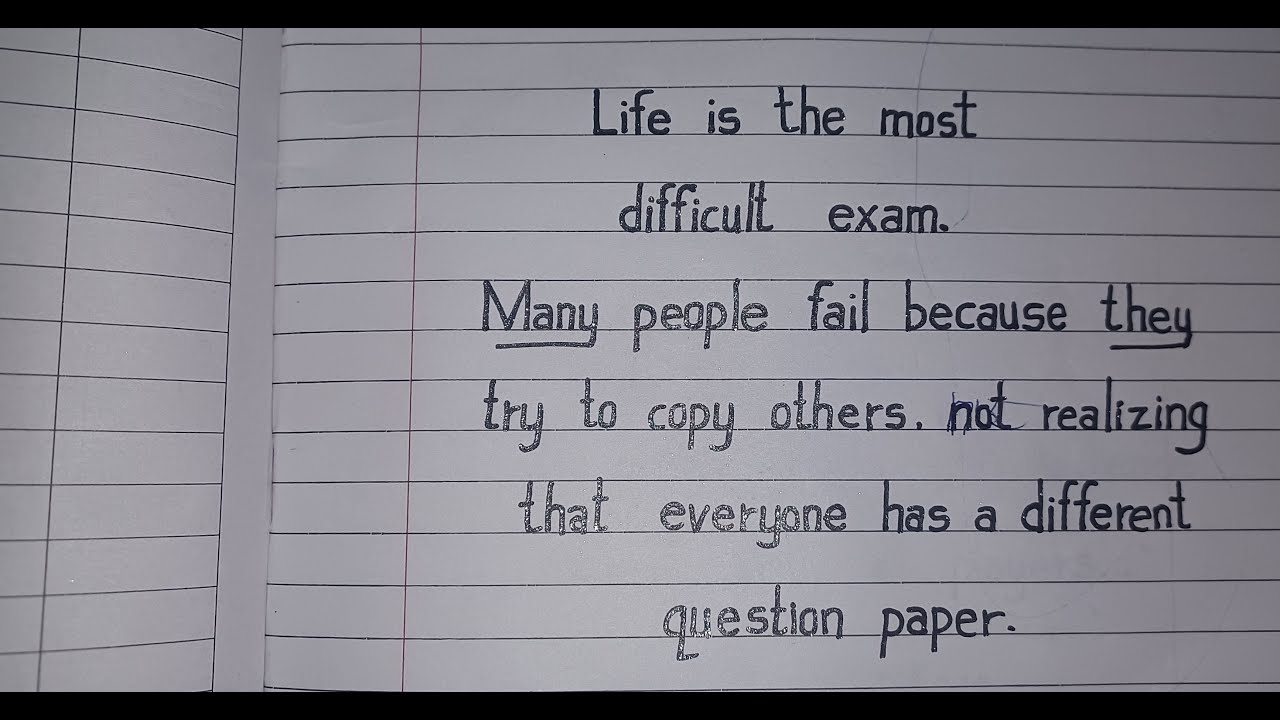 Life is the most
difficult exam.
Many people fail because they
try to copy others. not realizing
that everyone has a different
question paper.